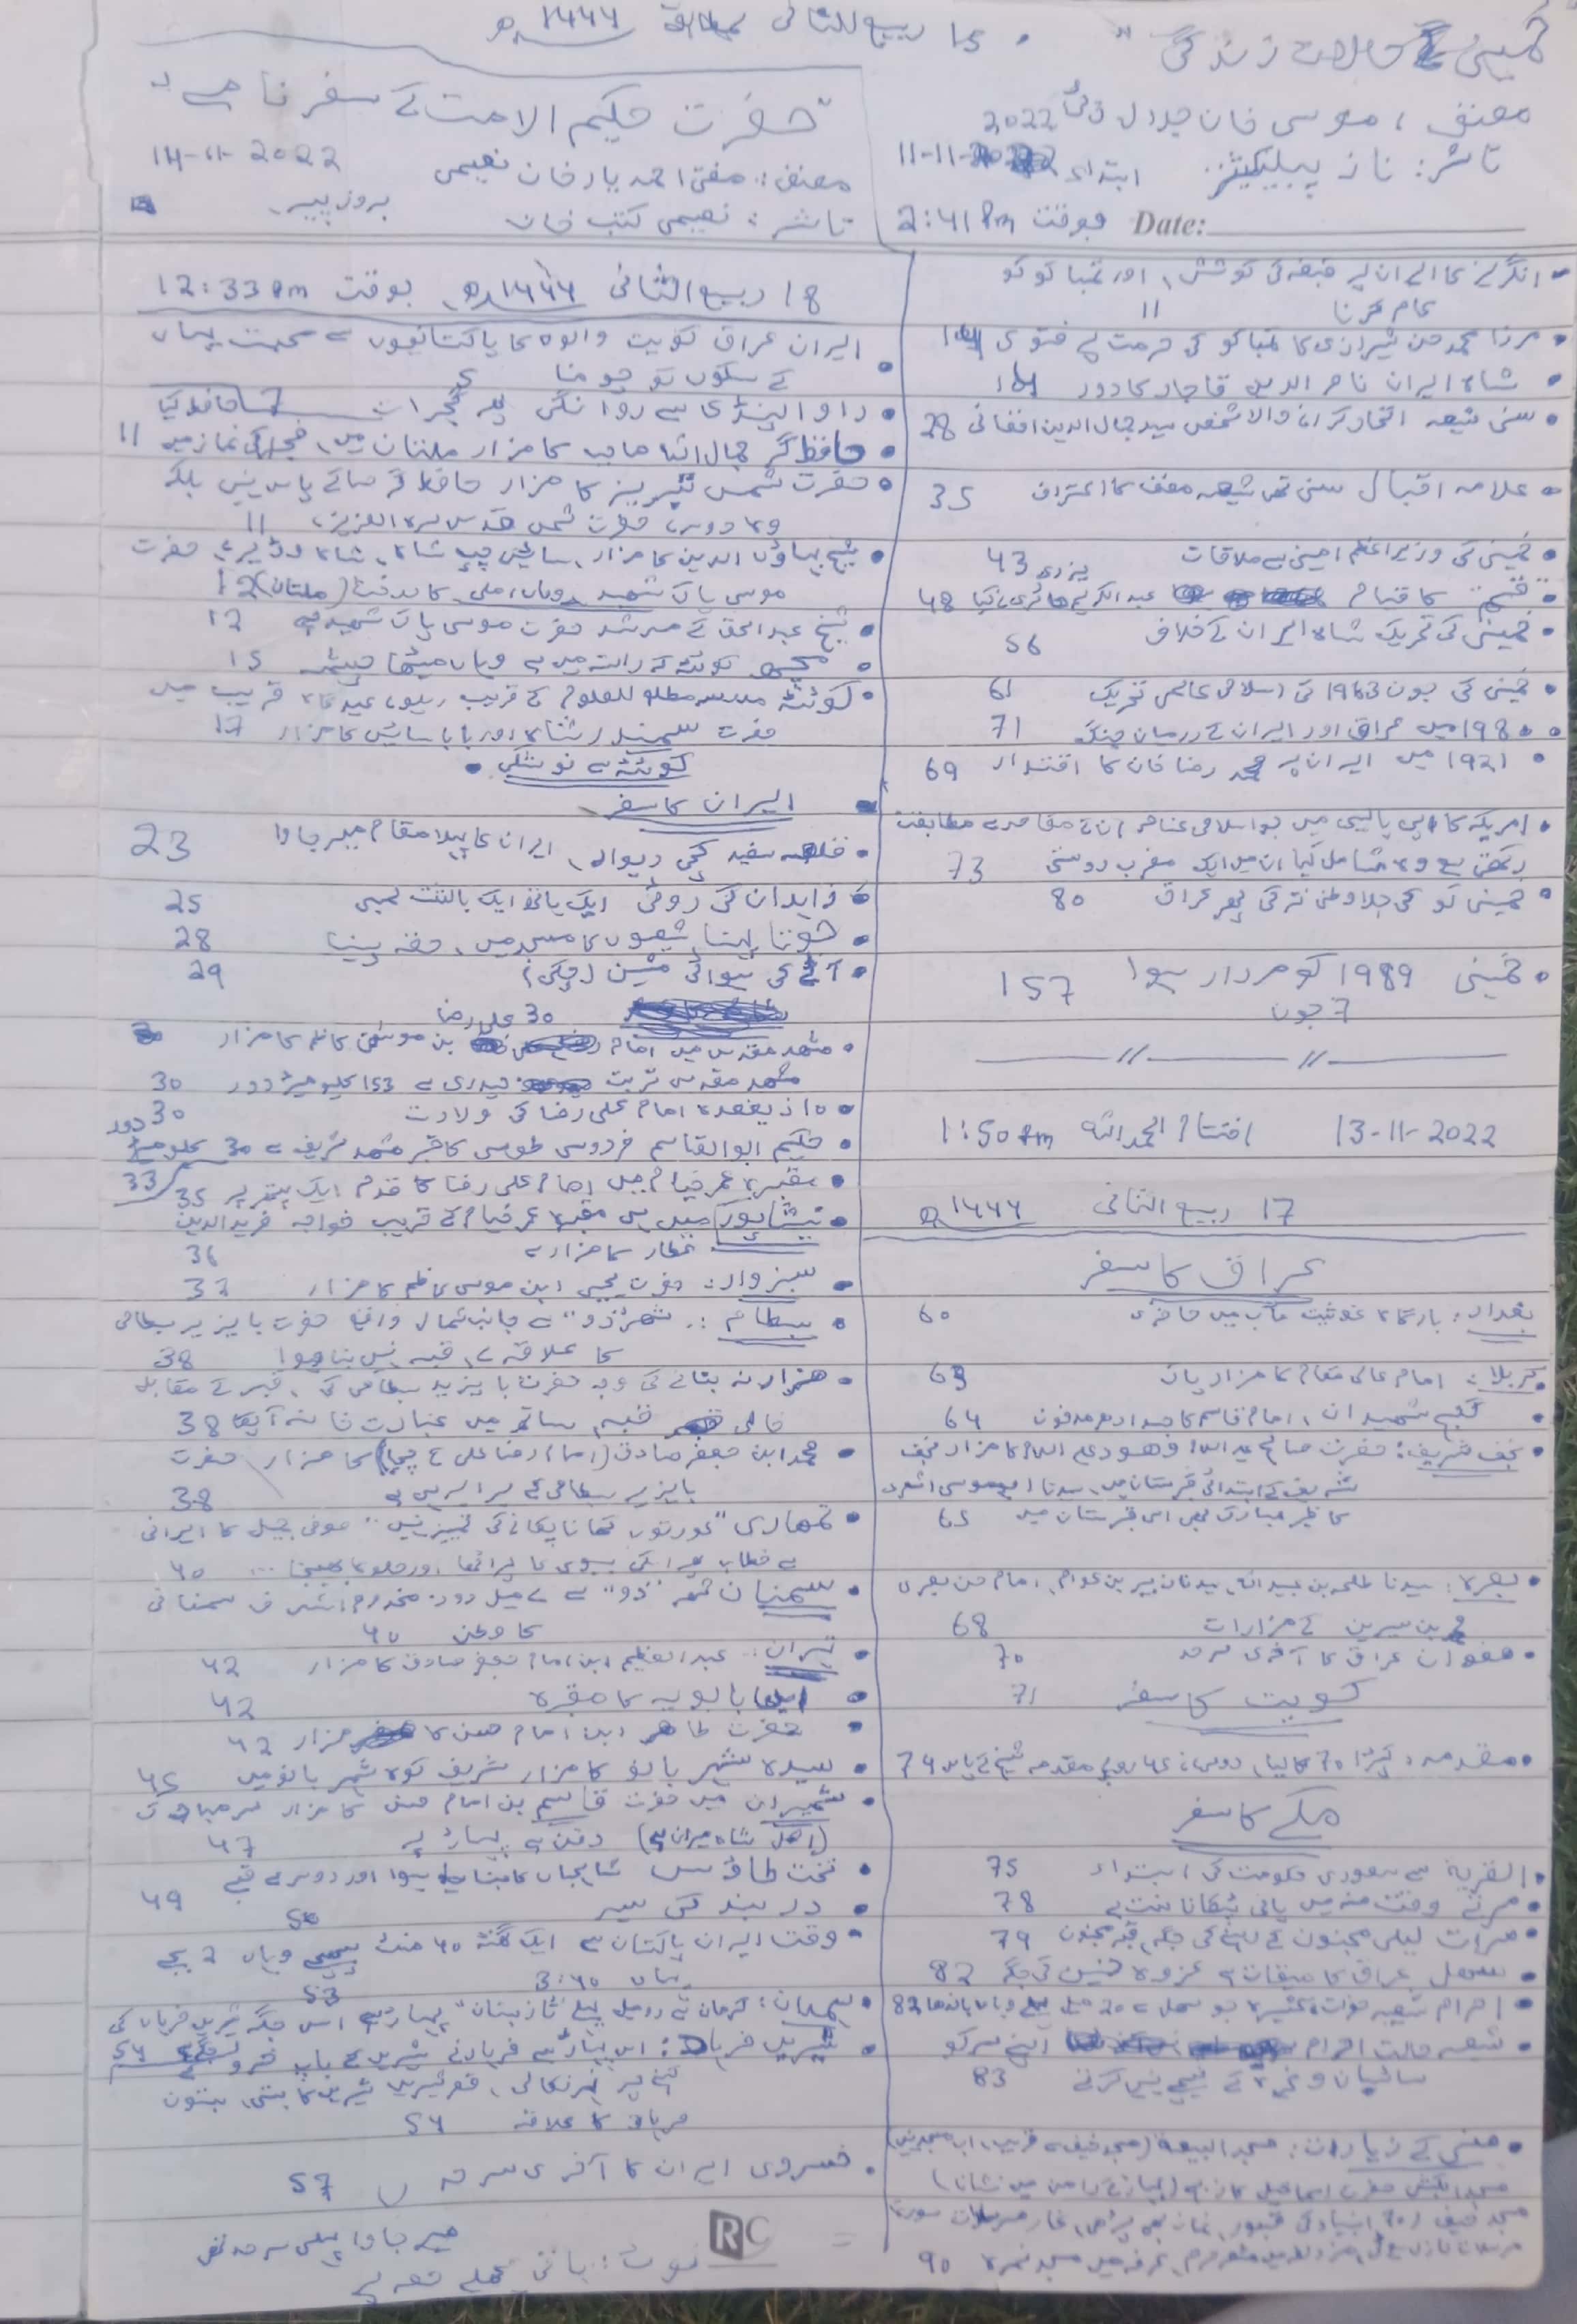 خمینی کے حالات زندگی "
15 ربیع الثانی بمطابق 1444ھ
مصنف: موسی خان جلال زئی 2022
ناشر: ناز پبلیکیشنز ابتداء 11-11-2022
بوقت 2:41 Pm Date:
• انگریز کا ایران پر قبضہ کی کوشش، اور تمباکو کو
عام کرنا 11
• مرزا محمد حسن شیرازی کا تمباکو کی حرمت پر فتوی
• شاہ ایران ناصر الدین قاچار کا دور
• سنی شیعہ اتحاد کرانے والا شخص سید جمال الدین افغانی 28
• علامہ اقبال سنی تھے شیعہ مصنف کا اعتراف 35
• خمینی کی وزیر اعظم امینی سے ملاقات 43
• "قم" کا قیام عبد الکریم حائری یزدی نے کیا 48
• خمینی کی تحریک شاہ ایران کے خلاف 56
• خمینی کی جون 1963 کی اسلامی عالمی تحریک 61
• 1980 میں عراق اور ایران کے درمیان جنگ 71
• 1921 میں ایران پر محمد رضا خان کا اقتدار 69
• امریکہ کا اپنی پالیسی میں جو اسلامی عناصر ان کے مقاصد سے مطابقت
رکھتے تھے وہ شامل کیا ان میں ایک مغرب دوستی 73
• خمینی کو کی جلاوطنی ترکی پھر عراق 80
• خمینی 1989 کو مردار ہوا 157
7 جون
——//——//——
13-11-2022 اختتام الحمدللہ 1:50 Pm
17 ربیع الثانی 1444ھ
عراق کا سفر
بغداد: بارگاہ غوثیت مآب میں حاضری 60
• کربلا: امام عالی مقام کا مزار پاک 63
• گنج شہیدان، امام قاسم کا جسد ادھر مدفون 64
• نجف شریف: حضرت صالح علیہ السلام و ھود علیہ السلام کا مزار نجف
شریف کے ابتدائی قبرستان میں، سیدنا ابو موسی اشعری
کا قبر مبارک بھی اسی قبرستان میں 65
• بصرہ: سیدنا طلحہ بن عبید اللہ، سیدنا زبیر بن عوام، امام حسن بصری
محمد بن سیرین کے مزارات 68
• صفوان عراق کا آخری سرحد 70
کویت کا سفر 71
• مقدمہ: کپڑا 70 کا لیا، مقدمہ شیخ کے پاس 74
مکے کا سفر
• القریۃ سے سعودی حکومت کی ابتداء 75
• مرتے وقت منہ میں پانی ٹپکانا سنت ہے 78
• مرات لیلی مجنون کے رہنے کی جگہ، قبر مجنون 79
• سھل عراق کا میقات ہے غزوہ حنین کی جگہ 82
• احرام شیعہ وہاں باندھا 82
• شیعہ حالت احرام اپنے سر کو
سائبان وغیرہ کے نیچے نہیں کرتے 83
• منی کے زیارات: مسجد البیعہ (مسجد خیف کے قریب، اب مسجد نہیں)
مسجد الکبش حضرت اسماعیل کا ذبح (پہاڑ کے دامن میں نشانات)
مسجد خیف (70 انبیاء کی قبور، نماز بھی پڑھی، غار مرسلات سورت
مرسلات نازل ہوئی، مزدلفہ میں مشعر حرام، عرفہ میں مسجد نمرہ 90
"حضرت حکیم الامت کے سفر نامے"
مصنف: مفتی احمد یار خان نعیمی 14-11-2022
ناشر: نعیمی کتب خانہ بروز پیر
18 ربیع الثانی 1444ھ بوقت 12:33 Pm
• ایران عراق کویت والوں کا پاکستانیوں سے محبت یہاں
کے سکوں کو چومنا
• راولپنڈی سے روانگی پھر گجرات
• حافظ جمال اللہ صاحب کا مزار ملتان میں، فجر کی نماز میں 11
• حضرت شمس تبریز کا مزار حافظ کے پاس نہیں بلکہ
وہ دوسرے حضرت شمس قدس سرہ العزیز 11
• شیخ بہاؤ الدین کا مزار، سائیں چپ شاہ، حضرت
موسی پاک شہید وہاں، کا مدفن (ملتان) 12
• شیخ عبدالحق کے مرشد حضرت موسی پاک شہید ہے 12
• مچھ کوئٹہ کے راستہ میں ہے وہاں میٹھا چشمہ 15
• کوئٹہ مدرسہ مطلع العلوم کے قریب ریلوے عیدگاہ قریب میں
حضرت سمندر شاہ اور بابا سائیں کا مزار 17
کوئٹہ سے نوشکی •
• ایران کا سفر
• قلعہ سفید کچی دیوار، ایران کا پہلا مقام میر جاوا 23
• زاہدان کی روٹی ایک ہاتھ ایک بالشت لمبی 25
• شیعوں کا مسجد میں، حقہ پینا 28
• آٹے کی ہوائی مشین (چکی) 29
30 علی رضا
• مشہد مقدس میں امام بن موسی کاظم کا مزار
مشہد مقدس تربت حیدری سے 153 کلو میٹر دور 30
• 10 ذیقعدہ امام علی رضا کی ولادت 30
• حکیم ابو القاسم فردوسی طوسی کا قبر مشہد شریف سے 30 کلومیٹر دور
33
• مقبرہ عمر خیام میں امام علی رضا کا قدم ایک پتھر پر 35
• نیشاپور میں ہی مقبرہ عمر خیام کے قریب خواجہ فرید الدین
عطار کا مزار ہے 36
• سبزوار: حضرت یحیی ابن موسی کاظم کا مزار 37
• بسطام: شھر "ذو" سے جانب شمال واقع حضرت بایزید بسطامی
کا علاقہ ہے، قبہ نہیں بنا ہوا 38
• مزار نہ بنانے کی وجہ حضرت بایزید بسطامی کی، قبر کے مقابلہ
خالی قبہ، ساتھ میں عبادت خانہ آپکا 38
• محمد ابن جعفر صادق (امام رضا علی کے چچا) کا مزار حضرت
بایزید بسطامی کے برابر ہی ہے 38
• تمھاری "عورتوں کھانا پکانے کی تمیز نہیں" صوفی جمیل کا ایرانی
سے خطاب پھر اسکی بیوی کا پراٹھا اور حلوہ کا بھیجنا ... 40
• سمنان شھر "ذو" سے 7 میل دور: مخدوم اشرف سمنانی
کا وطن 40
• تہران: عبد العظیم ابن امام جعفر صادق کا مزار 42
• بابویہ کا مقبرہ 42
• حضرت طاھر ابن امام حسن کا مزار 42
• سیدہ شہر بانو کا مزار شریف کوہ شھر بانو میں 45
• شمیران میں حضرت قاسم بن امام حسن کا مزار سر مبارک
(اصل شاہ میران ہے) دفن ہے پہاڑ پر 47
• تخت طاؤس شاہجہاں کا بنایا ہوا اور دوسرے قبے 49
• دربند کی سیر 50
• وقت ایران پاکستان سے ایک گھنٹہ 40 منٹ پیچھے وہاں 2 بجے
یہاں 3:40 53
• ہمدان: کرمان سے دو میل پہلے "تاز بنتان" پہاڑ ہے، اس جگہ شیریں فرہاد کی
• شیریں فرہاد: اس پہاڑ سے فرہاد نے شیریں کے باپ خسرو کے 54
لئے نہر نکالی، قصر شیریں شیریں کا بستی، بیستون
فرہاد کا علاقہ 54
• خسروی ایران کا آخری سرحد 57
میر جاوا پہلی سرحد تھی
RC نوٹ: باقی اگلے صفحہ پر